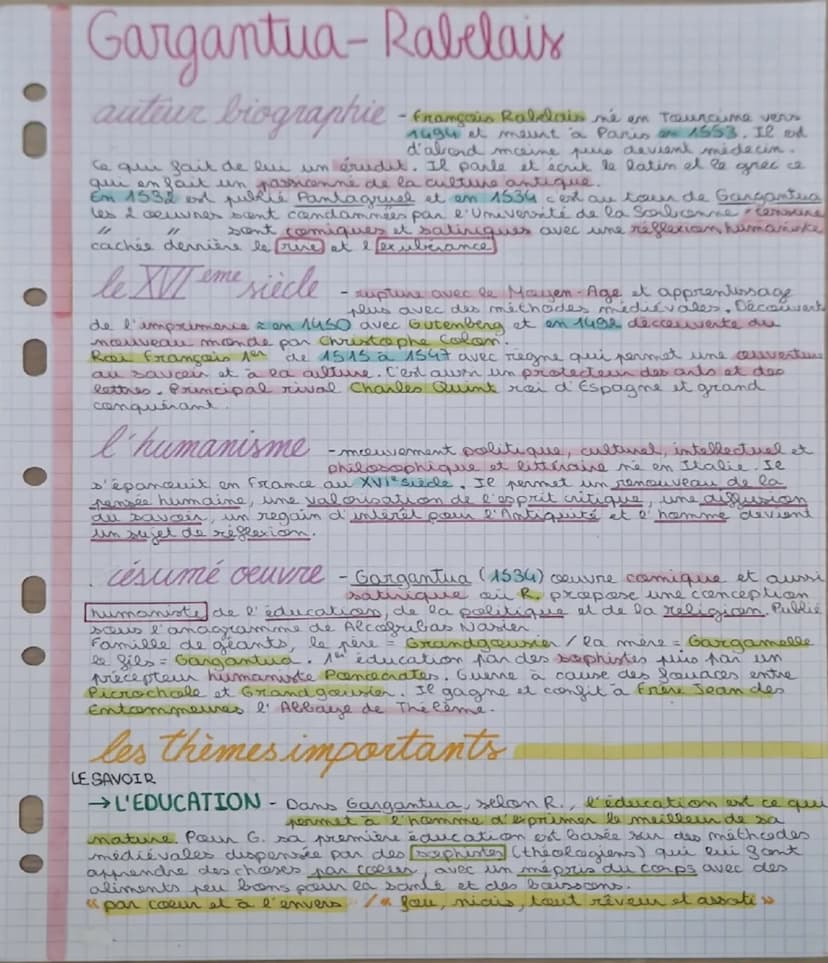 Gargantua - Rabelais
auteur biographie - François Rabelais né en Touraine vers
1494 et meurt à Paris en 1553. Il est
d'abord moine puis devient médecin.
Ce qui fait de lui un érudit. Il parle et écrit le latin et le grec ce
qui en fait un passionné de la culture antique.
En 1532 est publié Pantagruel et en 1534 c'est au tour de Gargantua
les 2 oeuvres sont condamnées par l'Université de la Sorbonne = censure
" " sont comiques et satiriques avec une réflexion humaniste
cachée derrière le rire et l'exubérance
le XVI ème siècle - rupture avec le Moyen-Age et apprentissage
plus avec des méthodes médiévales. Découverte
de l'imprimerie ≈ en 1450 avec Gutenberg et en 1492 découverte du
nouveau monde par Christophe Colom.
Roi François 1er de 1515 à 1547 avec règne qui permet une ouverture
au savoir et à la culture. C'est aussi un protecteur des arts et des
lettres. Principal rival Charles Quint roi d'Espagne et grand
conquérant.
l'humanisme - mouvement politique, culturel, intellectuel et
philosophique et littéraire né en Italie. Il
s'épanouit en France au XVIe siècle. Il permet un renouveau de la
pensée humaine, une valorisation de l'esprit critique, une diffusion
du savoir, un regain d'intérêt pour l'Antiquité et l'homme devient
un sujet de réflexion.
résumé oeuvre - Gargantua (1534) oeuvre comique et aussi
satirique où R. propose une conception
humaniste de l'éducation, de la politique et de la religion. Publié
sous l'anagramme de Alcofribas Nasier.
Famille de géants, le père = Grandgousier / la mère = Gargamelle
le fils = Gargantua. 1re éducation par des sophistes puis par un
précepteur humaniste Ponocrates. Guerre à cause des fouaces entre
Picrochole et Grandgousier. Il gagne et confit à Frère Jean des
Entommeures l'Abbaye de Thélème.
les thèmes importants
LE SAVOIR
→ L'EDUCATION - Dans Gargantua, selon R., l'éducation est ce qui
permet à l'homme d'exprimer le meilleur de sa
nature. Pour G. sa première éducation est basée sur des méthodes
médiévales dispensée par des sophistes (théologiens) qui lui font
apprendre des choses par coeur, avec un mépris du corps avec des
aliments peu bons pour la santé et des boissons.
"par coeur et à l'envers / « fou, niais, tout rêveur et assoti »